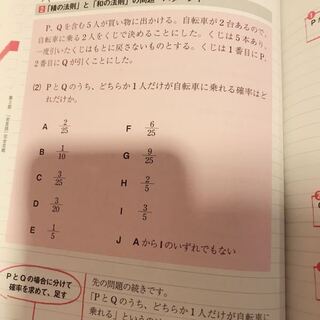 2 「積の法則」と「和の法則」の問題
P、Qを含む5人が買い物に出かける。自転車が2台あるので、
自転車に乗る2人をくじで決めることにした。くじは5本あり、
一度引いたくじはもとに戻さないものとする。くじは1番目にP、
2番目にQが引くことにした。
(2) PとQのうち、どちらか1人だけが自転車に乗れる確率はど
れだけか。
A 2/25 F 6/25
B 1/10 G 9/25
C 3/25 H 2/5
D 3/20 I 3/5
E 1/5 J AからIのいずれでもない
PとQの場合に分けて
確率を求めて、足す
先の問題の続きです。
「PとQのうち、どちらか1人だけが自
乗れる」という